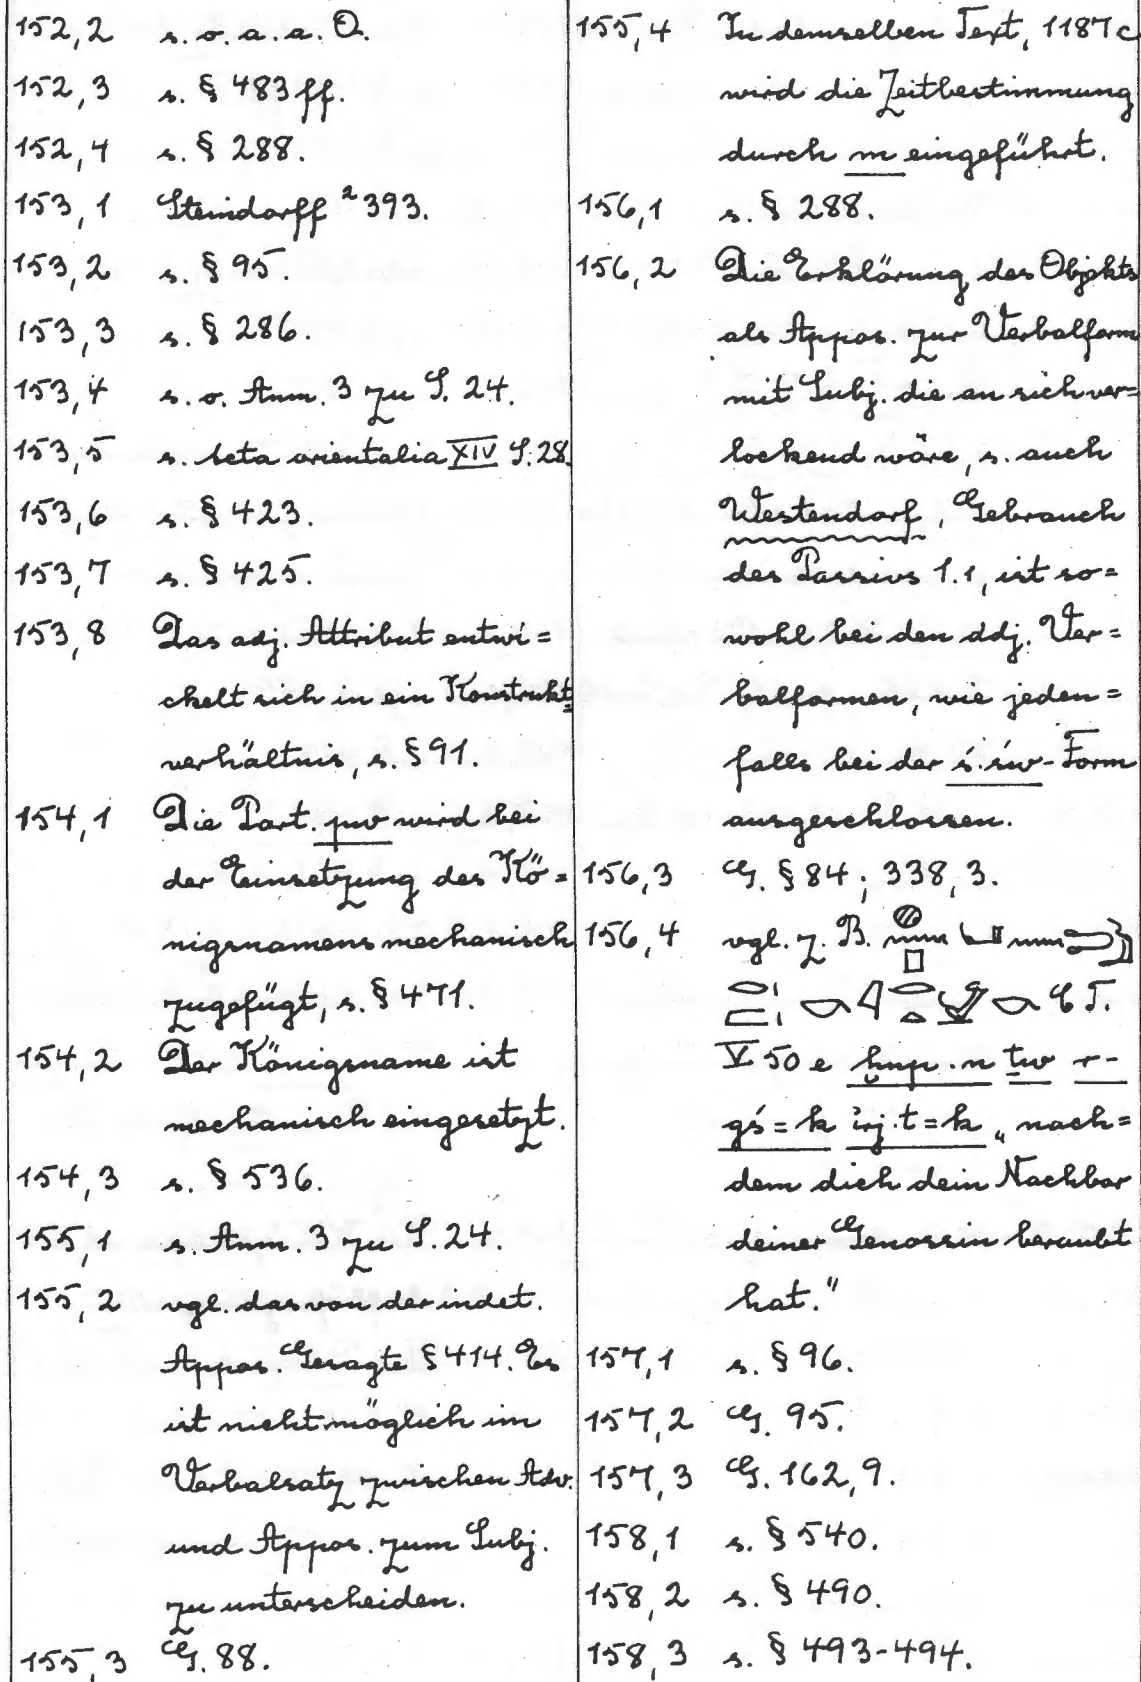 152,2 s. o. a. a. O.
152,3 s. § 483 ff.
152,4 s. § 288.
153,1 Steindorff ² 393.
153,2 s. § 95.
153,3 s. § 286.
153,4 s. o. Anm. 3 zu S. 24.
153,5 s. Acta orientalia XIV S. 28.
153,6 s. § 423.
153,7 s. § 425.
153,8 Das adj. Attribut entwi=
ckelt sich in ein Konstrukt=
verhältnis, s. § 91.
154,1 Die Part. pw wird bei
der Einsetzung des Kö=
nigsnamens mechanisch
zugefügt, s. § 471.
154,2 Der Königsname ist
mechanisch eingesetzt.
154,3 s. § 536.
155,1 s. Anm. 3 zu S. 24.
155,2 vgl. das von der indet.
Appos. Gesagte § 414. Es
ist nicht möglich im
Verbalsatz zwischen Adv.
und Appos. zum Subj.
zu unterscheiden.
155,3 G. 88.
155,4 In demselben Text, 1187 c
wird die Zeitbestimmung
durch m eingeführt.
156,1 s. § 288.
156,2 Die Erklärung des Objekts
als Appos. zur Verbalform
mit Subj. die an sich ver=
lockend wäre, s. auch
Westendorf, Gebrauch
des Passivs 1.1, ist so=
wohl bei den ddj. Ver=
balformen, wie jeden=
falls bei der ś.św-Form
ausgeschlossen.
156,3 G. § 84; 338,3.
156,4 vgl. z. B.
CT.
V 50 e ḫnp.n ṯw r-
gś=k irj.t=k „nach=
dem dich dein Nachbar
deiner Genossin beraubt
hat."
157,1 s. § 96.
157,2 G. 95.
157,3 G. 162,9.
158,1 s. § 540.
158,2 s. § 490.
158,3 s. § 493-494.